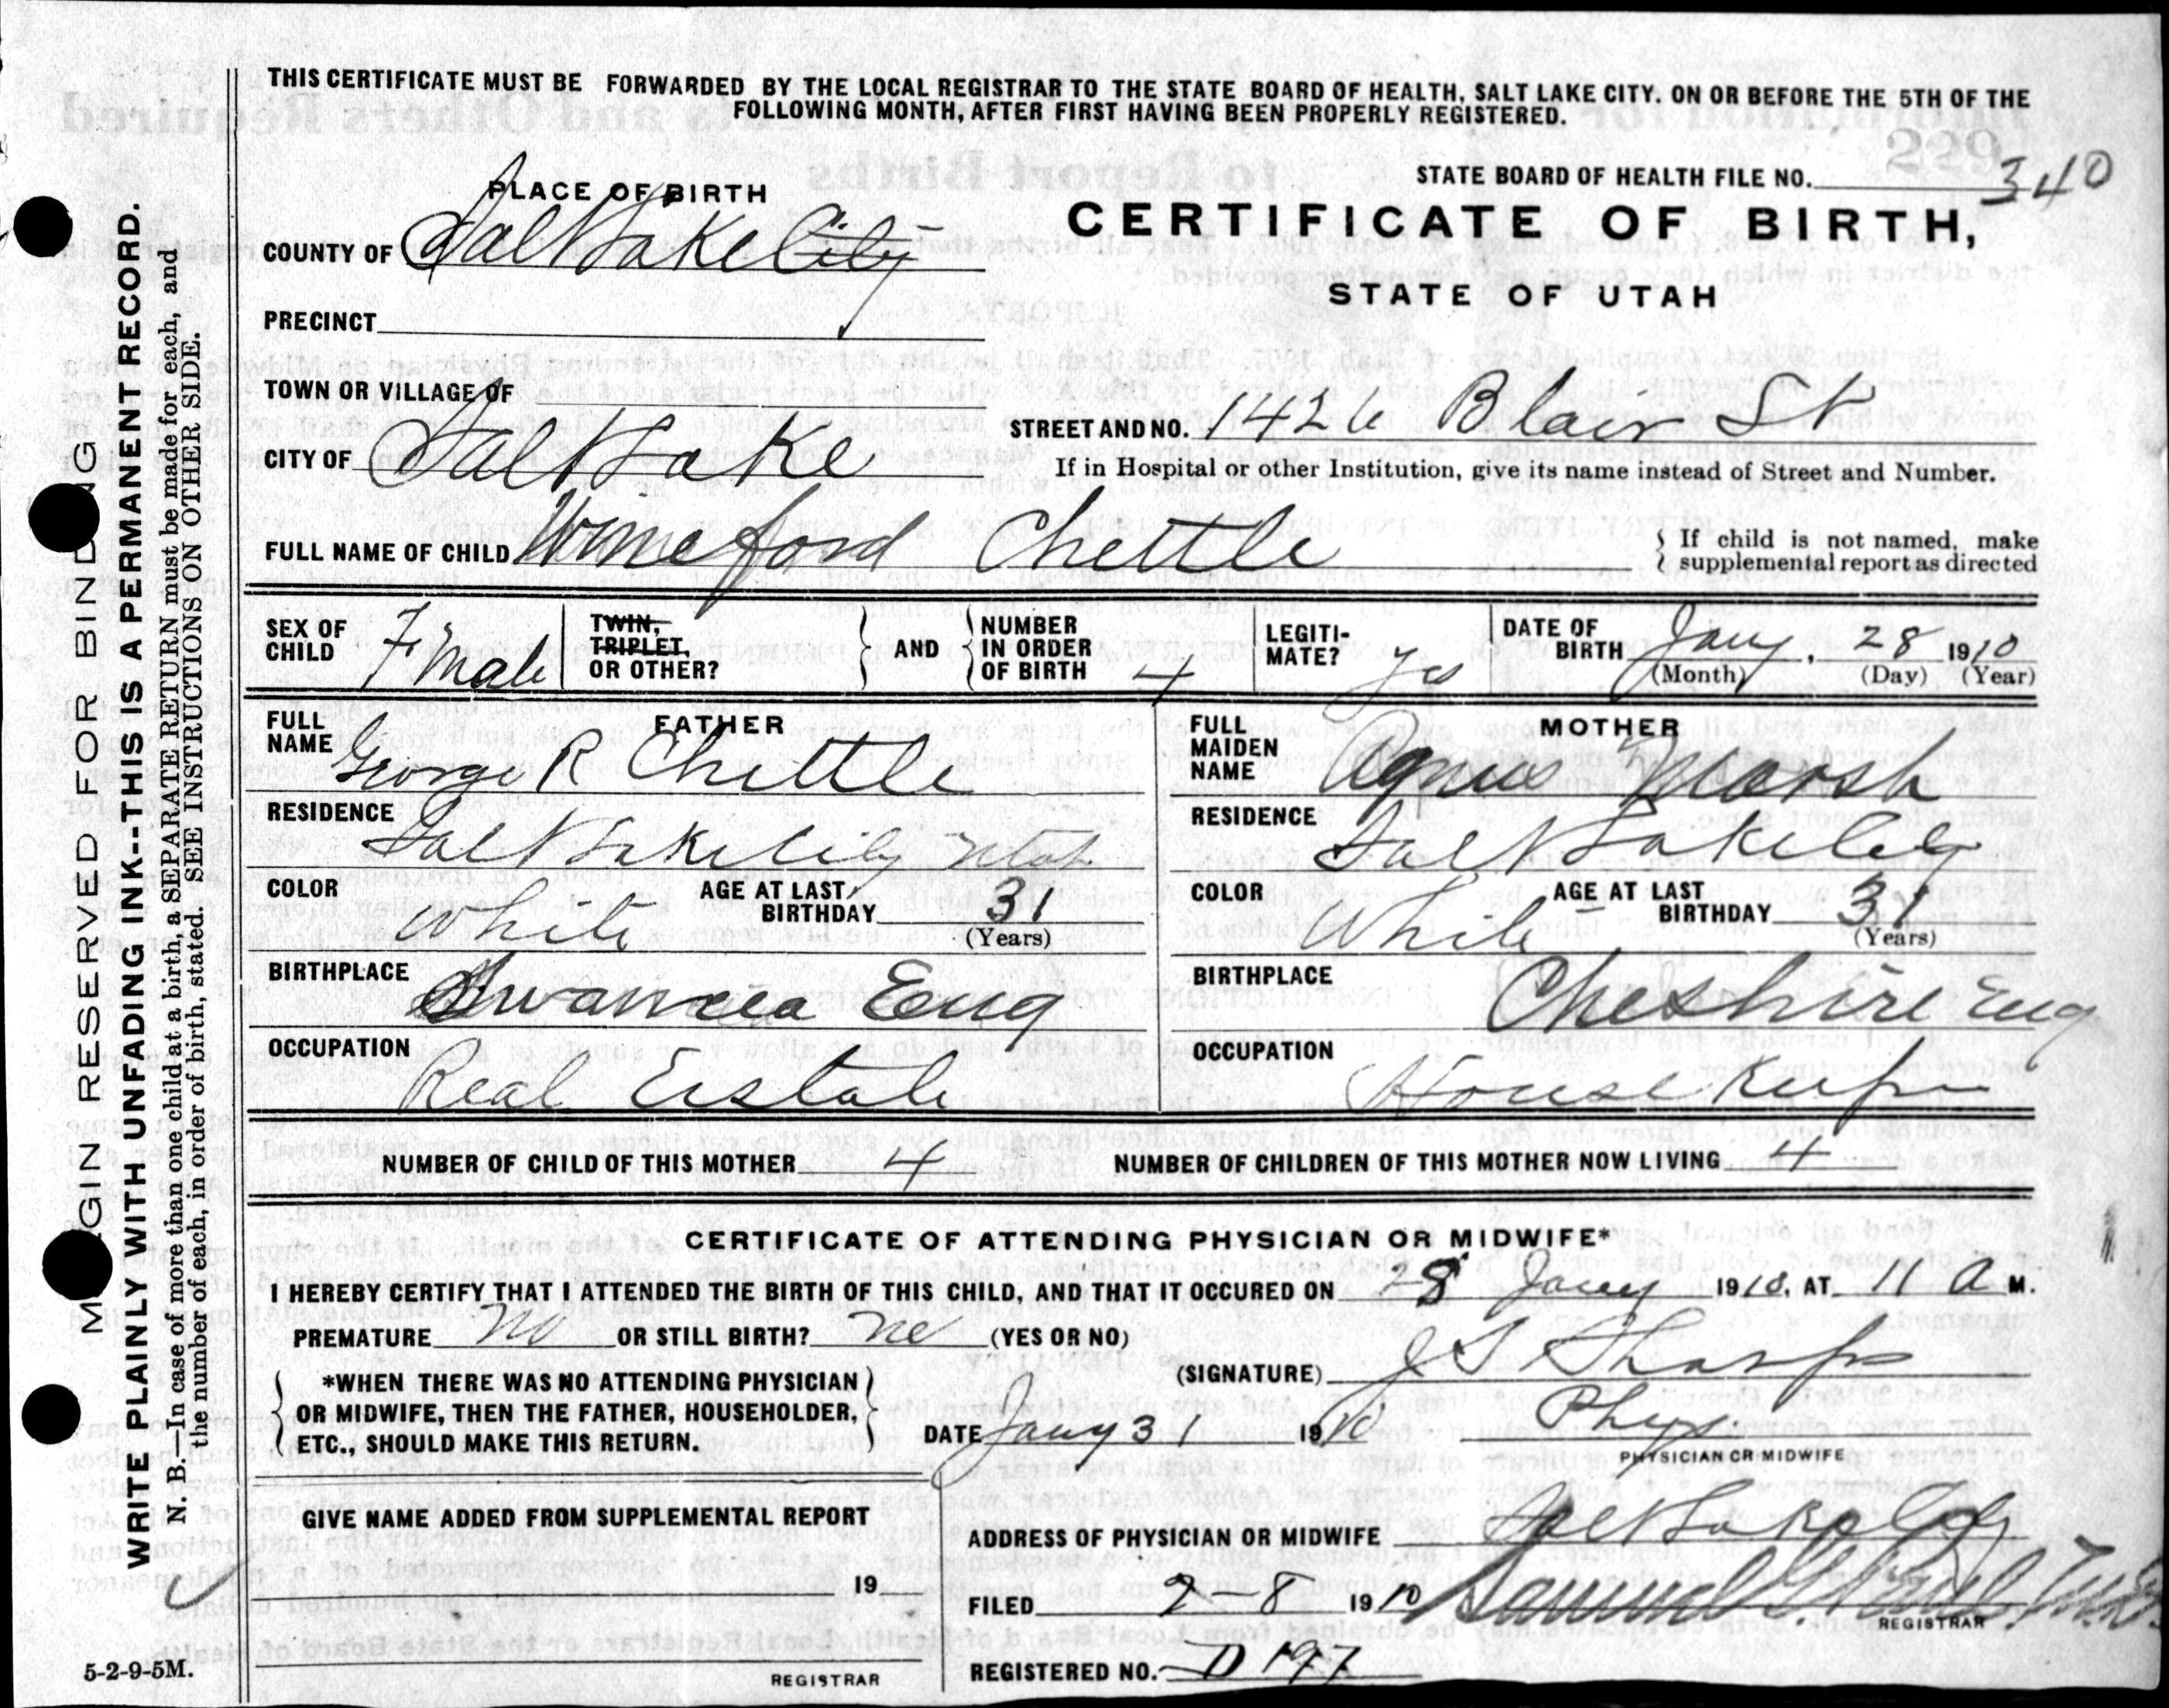 THIS CERTIFICATE MUST BE FORWARDED BY THE LOCAL REGISTRAR TO THE STATE BOARD OF HEALTH, SALT LAKE CITY. ON OR BEFORE THE 5TH OF THE
FOLLOWING MONTH, AFTER FIRST HAVING BEEN PROPERLY REGISTERED.
STATE BOARD OF HEALTH FILE NO. 340
CERTIFICATE OF BIRTH,
STATE OF UTAH
PLACE OF BIRTH
COUNTY OF Salt Lake City
PRECINCT
TOWN OR VILLAGE OF
CITY OF Salt Lake
STREET AND NO. 1426 Blair St
If in Hospital or other Institution, give its name instead of Street and Number.
FULL NAME OF CHILD Wineford Chettle
If child is not named, make
supplemental report as directed
SEX OF CHILD Fmale
TWIN, TRIPLET, OR OTHER?
AND
NUMBER IN ORDER OF BIRTH 4
LEGITI-MATE? Yes
DATE OF BIRTH Jany. 28 1910
(Month) (Day) (Year)
FATHER
FULL NAME George R Chettle
RESIDENCE Salt Lake City Utah
COLOR White AGE AT LAST BIRTHDAY 31
(Years)
BIRTHPLACE Swansea Eng
OCCUPATION Real Estate
MOTHER
FULL MAIDEN NAME Agnes Marsh
RESIDENCE Salt Lake City
COLOR White AGE AT LAST BIRTHDAY 31
(Years)
BIRTHPLACE Cheshire Eng
OCCUPATION House Keeper
NUMBER OF CHILD OF THIS MOTHER 4 NUMBER OF CHILDREN OF THIS MOTHER NOW LIVING 4
CERTIFICATE OF ATTENDING PHYSICIAN OR MIDWIFE*
I HEREBY CERTIFY THAT I ATTENDED THE BIRTH OF THIS CHILD, AND THAT IT OCCURED ON 28 Jany 1910, AT 11 A M.
PREMATURE No OR STILL BIRTH? no (YES OR NO)
(SIGNATURE) J S Sharp
*WHEN THERE WAS NO ATTENDING PHYSICIAN
OR MIDWIFE, THEN THE FATHER, HOUSEHOLDER,
ETC., SHOULD MAKE THIS RETURN.
DATE Jany 31 1910 Phys.
PHYSICIAN OR MIDWIFE
GIVE NAME ADDED FROM SUPPLEMENTAL REPORT
19
REGISTRAR
ADDRESS OF PHYSICIAN OR MIDWIFE Salt Lake City
FILED 2-8 1910 Samuel G. Paul
REGISTRAR
REGISTERED NO. D 197
5-2-9-5M.
MARGIN RESERVED FOR BINDING
WRITE PLAINLY WITH UNFADING INK--THIS IS A PERMANENT RECORD.
N. B.—In case of more than one child at a birth, a SEPARATE RETURN must be made for each, and
the number of each, in order of birth, stated. SEE INSTRUCTIONS ON OTHER SIDE.